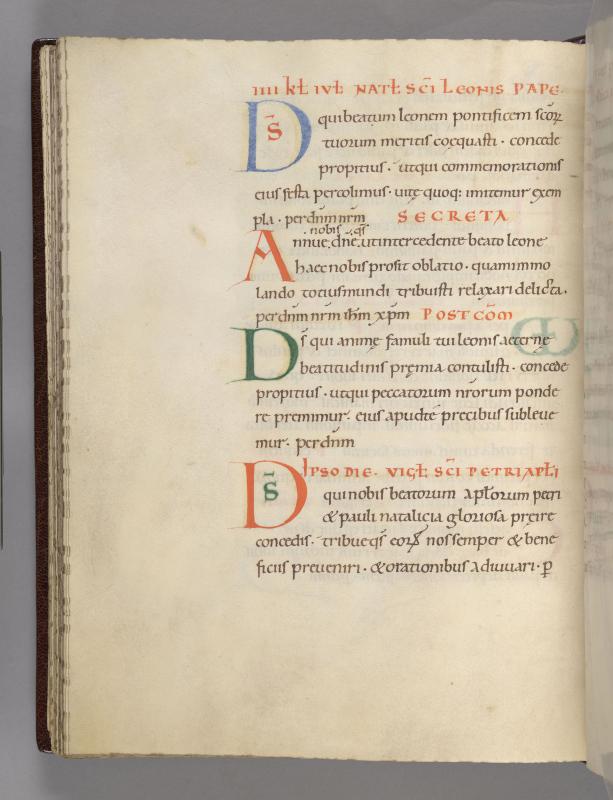 IIII KŁ IUŁ NATŁ SC̄I LEONIS PAPE.
DS̄ qui beatum leonem pontificem sc̄oꝝ
tuorum meritis coęquasti · concede
propitius · ut qui commemorationis
eius festa percolimus · uitę quoq: imitemur exem
pla · per dn̄m nr̄m SECRETA
nobis qs̄
Annue dn̄e ut intercedente beato leone
haec nobis prosit oblatio · quam immo
lando totius mundi tribuisti relaxari delicta ·
per dn̄m nr̄m ih̄m xp̄m POST COM̄
Ds̄ qui animę famuli tui leonis aeternę
beatitudinis pręmia contulisti · concede
propitius · ut qui peccatorum nr̄orum ponde
re premimur · eius apud te precibus subleue
mur · per dn̄m
IPSO DIE · VIGŁ SC̄I PETRI APŁI
DS̄ qui nobis beatorum apłorum petri
& pauli natalicia gloriosa pręire
concedis · tribue qs̄ eoꝝ nos semper & bene
ficiis preueniri · & orationibus adiuuari · ꝑ